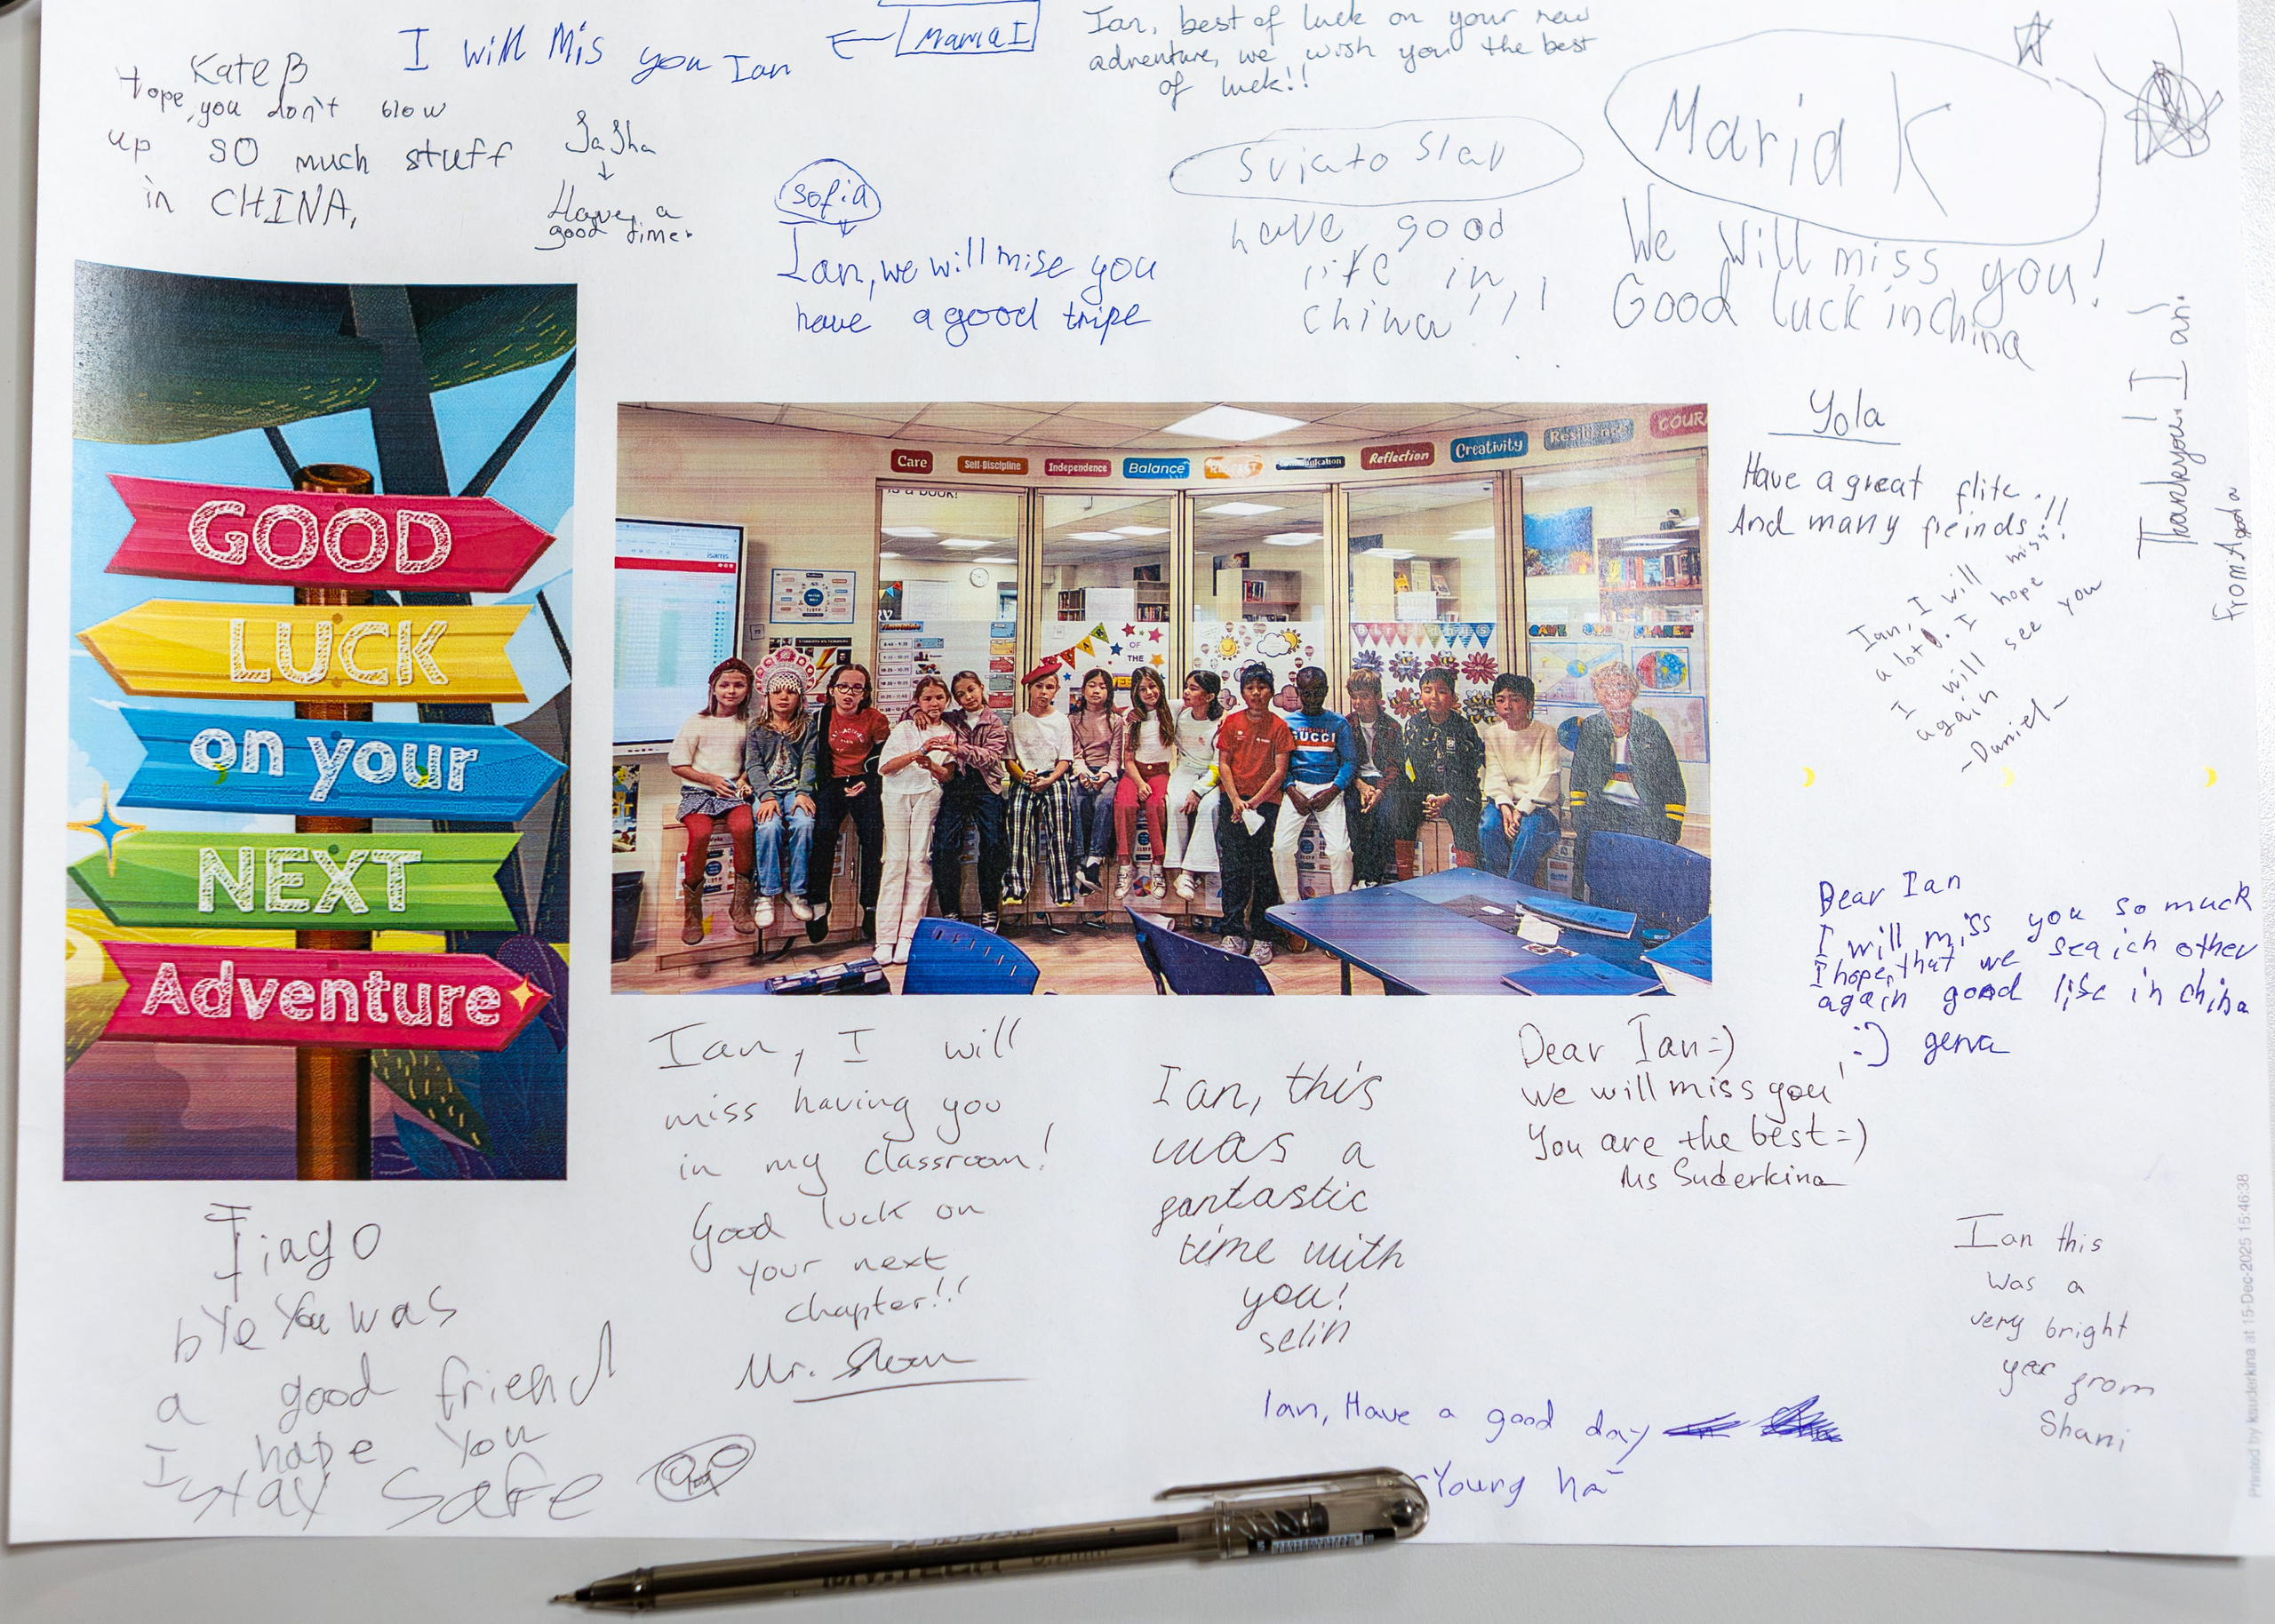 Kate B
Hope you don't blow
up so much stuff
in CHINA,
I will Mis you Ian
Maria I
Ian, best of luck on your new
adventure, we wish you the best
of luck!!
Sasha
Have a
good time.
Sofia
Ian, we will mise you
have a good tripe
Sviato slav
have good
life in
china!!!
Maria K
We will miss you!
Good luck in China
Thank you! Ian!
From: Agata
Yola
Have a great flite.!!
And many freinds!!
Ian, I will miss
a lot. I hope
I will see you
again
-Daniel-
GOOD
LUCK
on your
NEXT
Adventure
is a book!
Care
Self-Discipline
Independence
Balance
RESPECT
Communication
Reflection
Creativity
Resilience
COUR
isams
OF
THE
WEEK
GUCCI
Dear Ian
I will miss you so muck
I hope, that we seaich other
again good life in china
:) gerva
Ian, I will
miss having you
in my classroom!
Good luck on
your next
chapter!!!
Mr.
Ian, this
was a
fantastic
time with
you!
selin
Dear Ian =)
We will miss you!
You are the best =)
Ms Suderkina
Tiago
bye You was
a good friend
I hope you
stay safe
Ian, Have a good day
Young ha
Ian this
was a
very bright
year from
Shani
Printed by ksuderkina at 15-Dec-2025 15:46:38